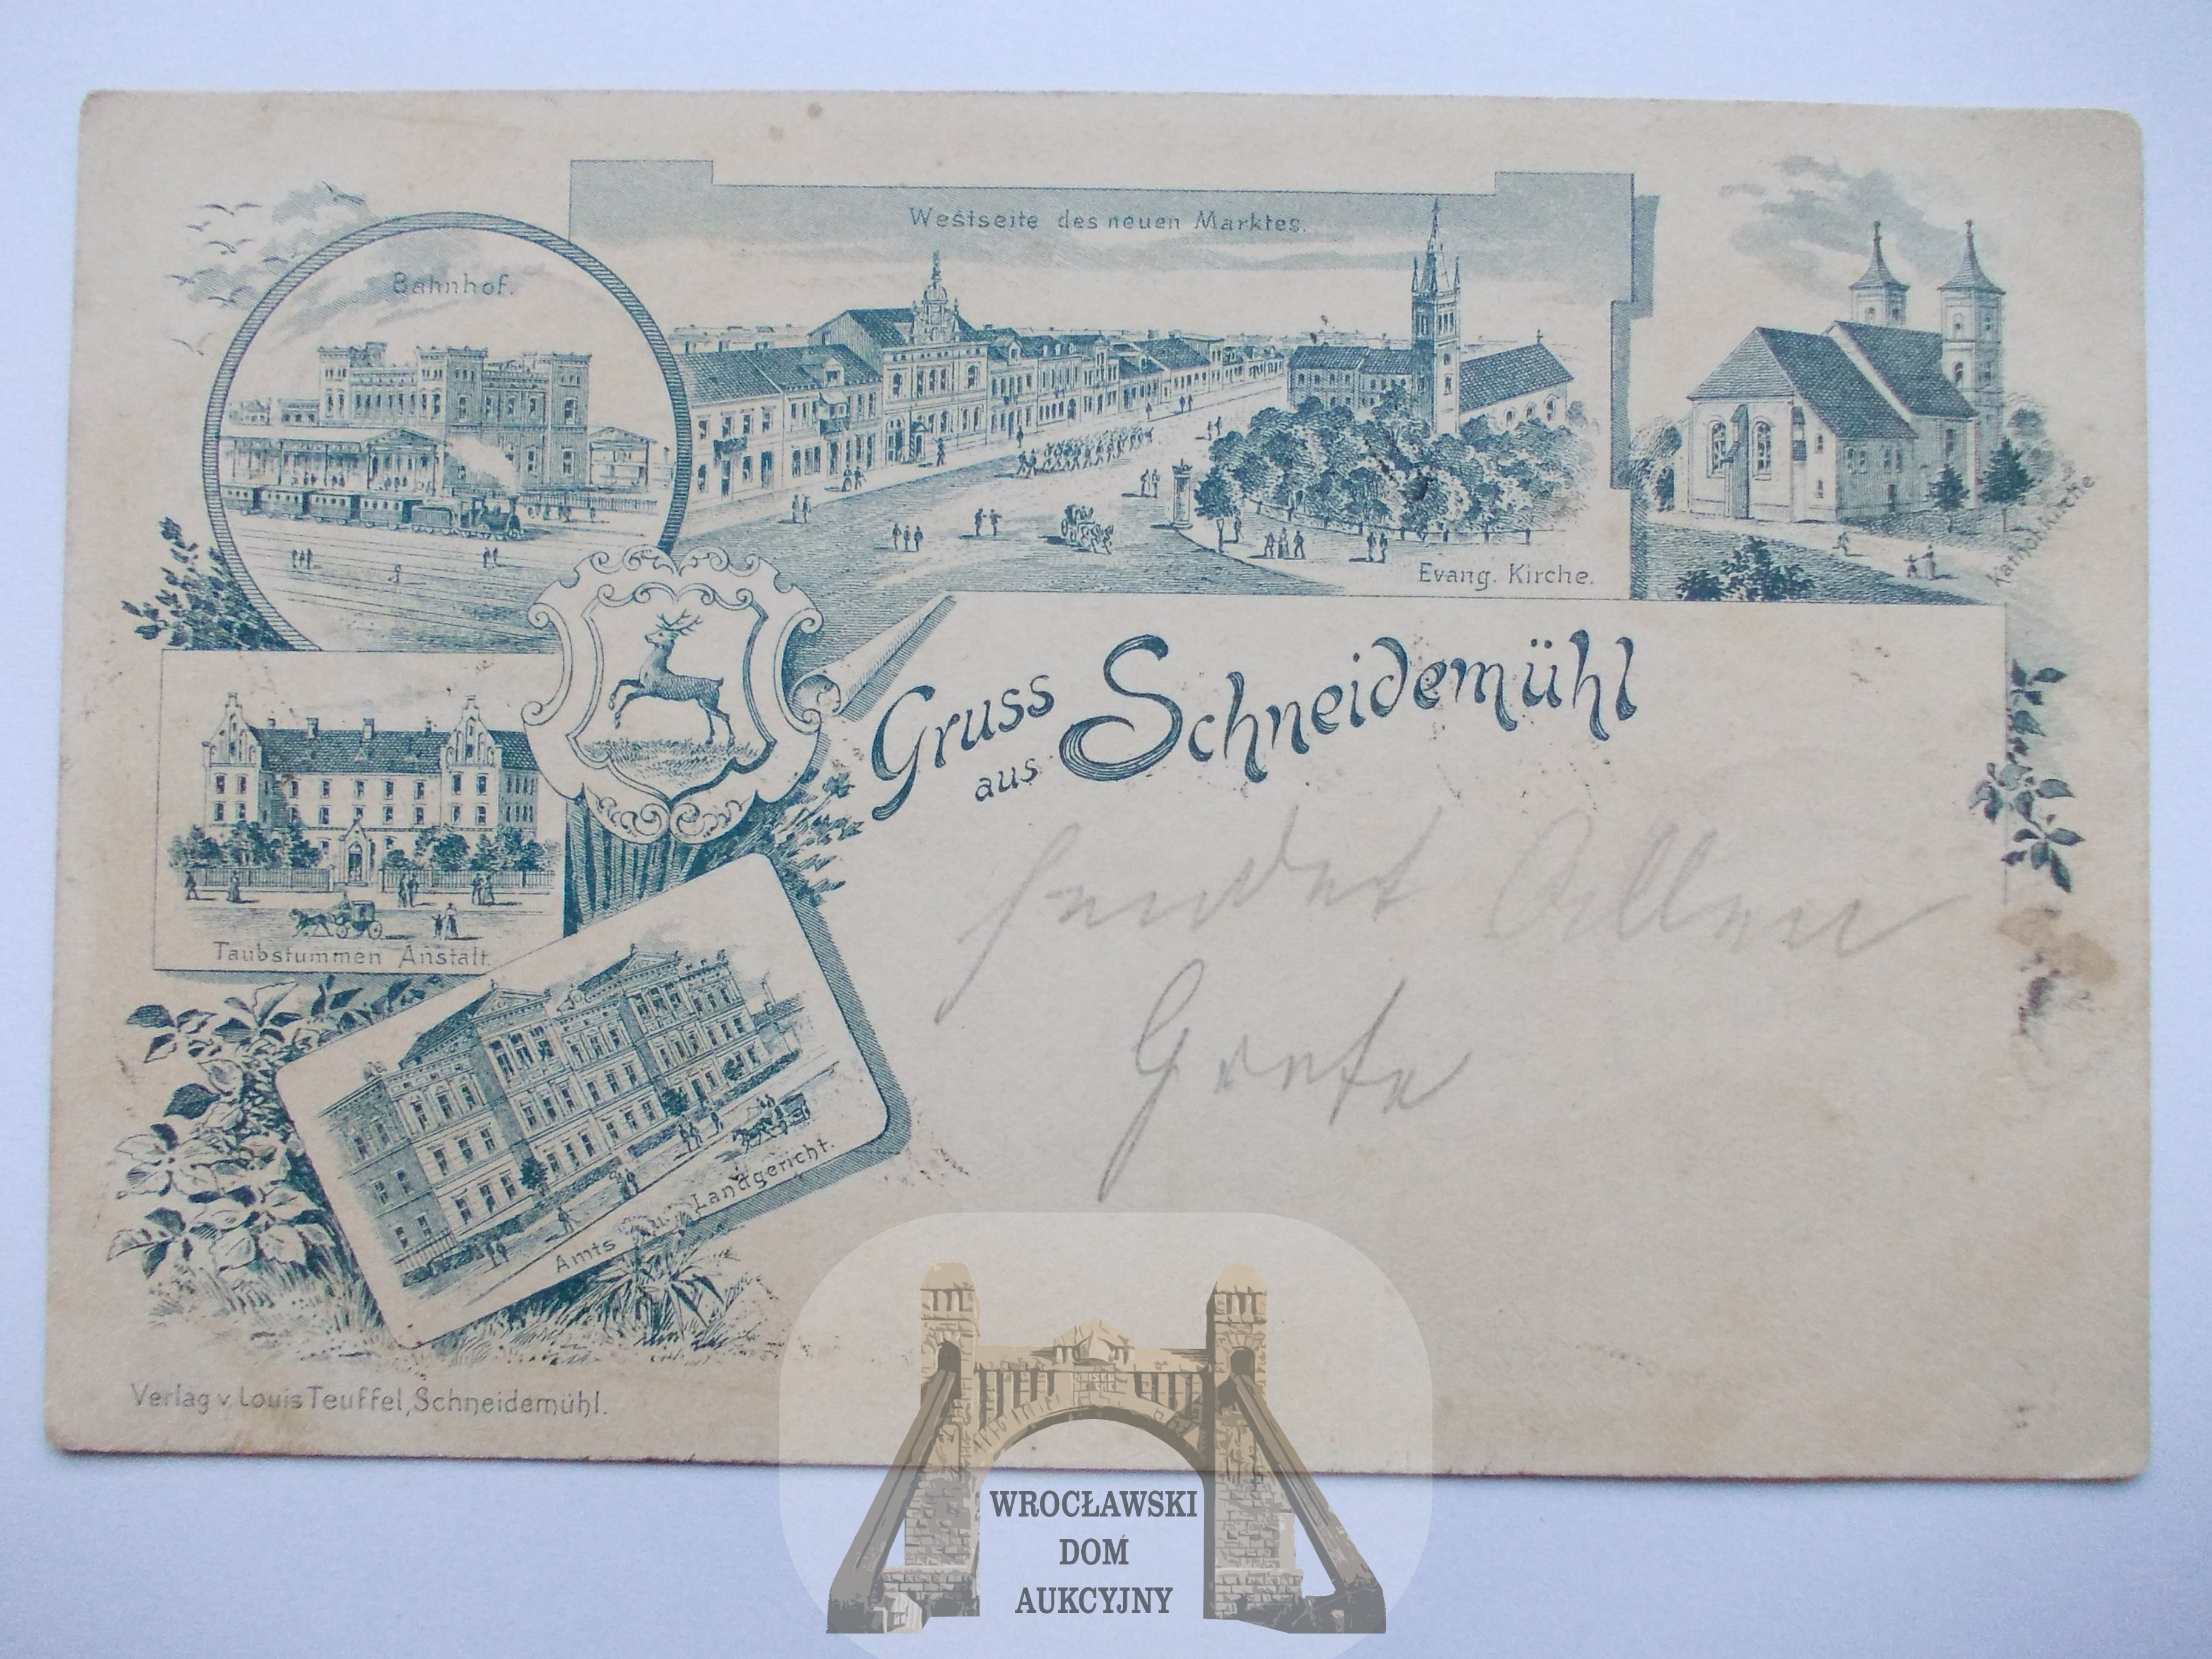 Westseite des neuen Marktes.
Bahnhof.
Evang. Kirche.
Kathol. Kirche
Gruss
aus Schneidemühl
sendet Allen
Grete
Taubstummen Anstalt.
Amts u. Landgericht.
Verlag v. Louis Teuffel, Schneidemühl.
WROCŁAWSKI
DOM
AUKCYJNY